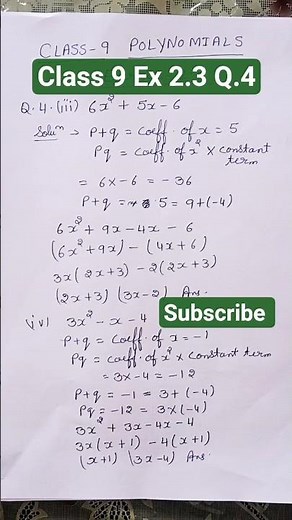 CLASS-9 POLYNOMIALS
Class 9 Ex 2.3 Q.4
Q.4.(iii) 6x² + 5x - 6
Soluⁿ → P+q = Coeff. of x = 5
Pq = Coeff. of x² × Constant
term
= 6×-6 = -36
P+q = 5 = 9+(-4)
6x² + 9x - 4x - 6
(6x² + 9x) - (4x + 6)
3x(2x+3) - 2(2x+3)
(2x+3) (3x-2) Ans.
Subscribe
(iv) 3x² - x - 4
P+q = Coeff. of x = -1
Pq = Coeff. of x² × Constant term
= 3×-4 = -12
P+q = -1 = 3+(-4)
Pq = -12 = 3×(-4)
3x² + 3x - 4x - 4
3x(x+1) - 4(x+1)
(x+1) (3x-4) Ans.